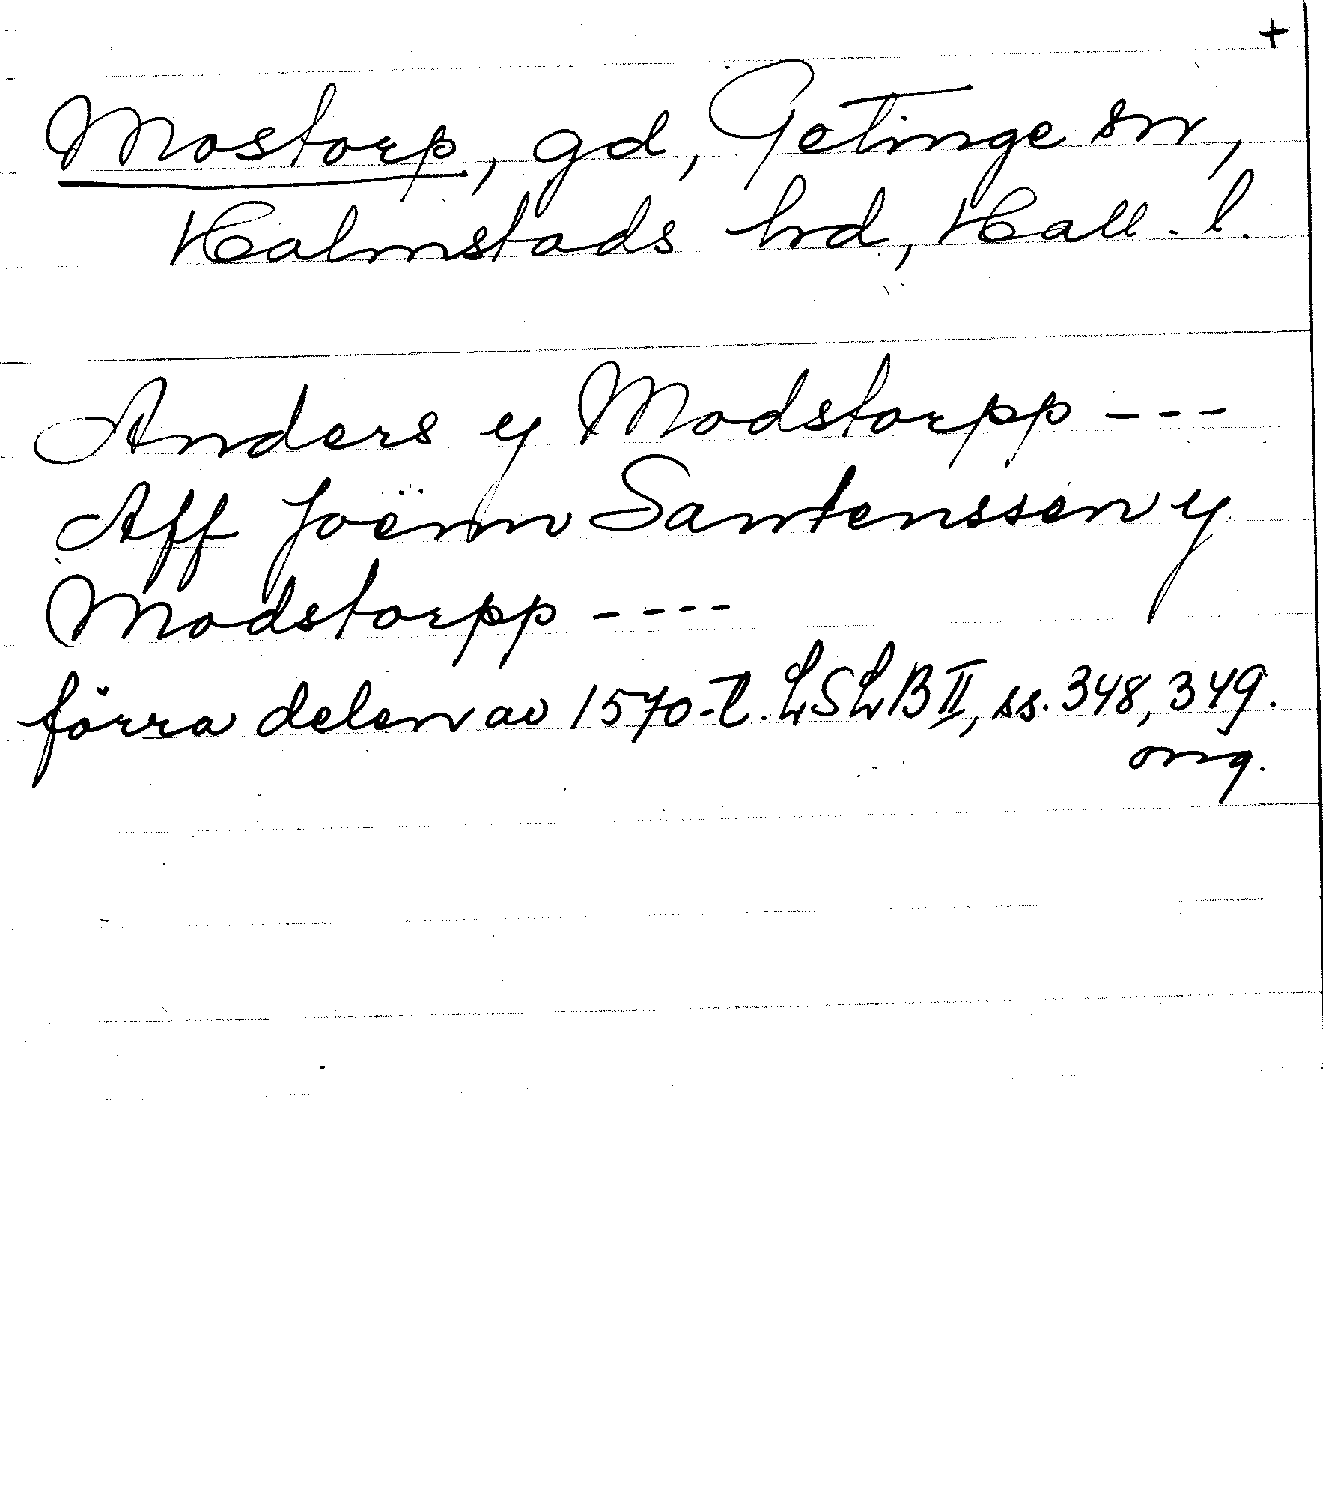 +
Mostorp, gd, Getinge sn,
Halmstads hd, Hall. l.
Anders y Modstorpp ---
Aff Joënn Santenssen y
Modstorpp ----
förra delen av 1570-t. LSLB II, ss. 348, 349.
orig.